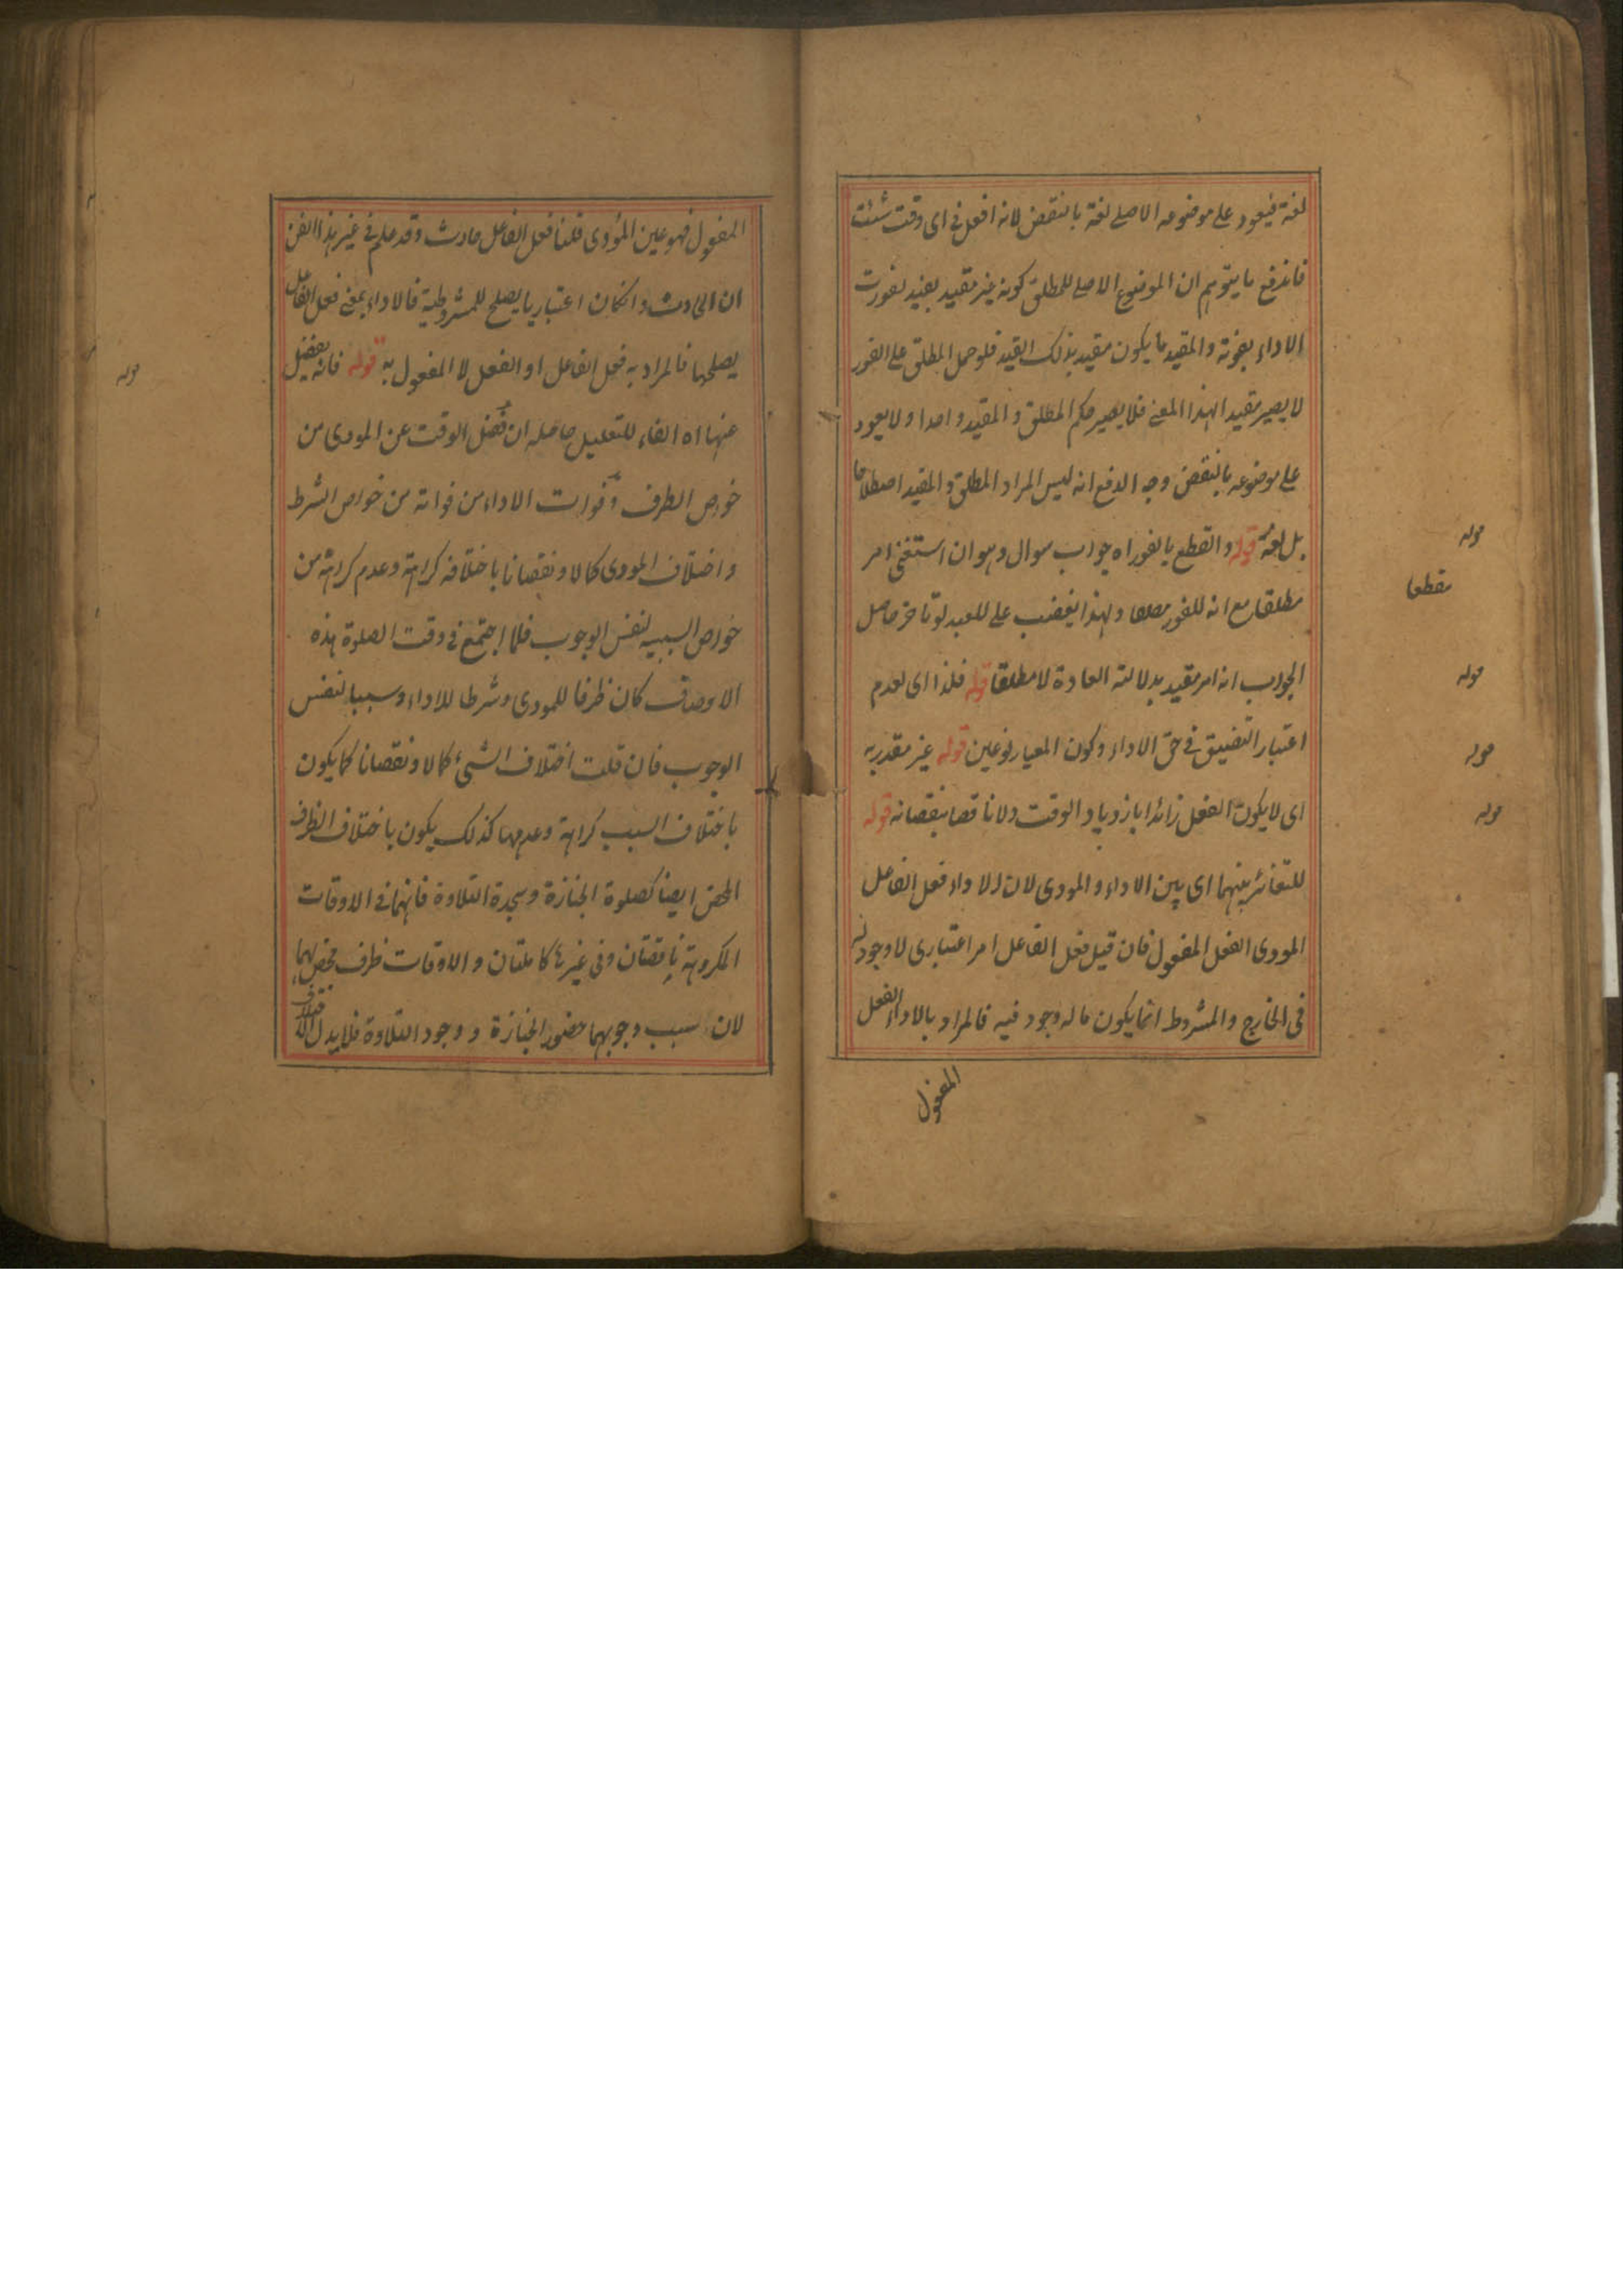 لغة فيعود على موضوعه الاصلے لغة بالنقض لانه افعل فى اى وقت شئت
فاندفع ما يتوهم ان الموضوع الاصلے للمطلق كونه غير مقيد بقيد يفوت
الاداء بفوته والمقيد ما يكون مقيد بذلك القيد فلو حمل المطلق على الفور
لا يصير مقيدا لهذا المعنے فلا يصير حكم المطلق والمقيد واحدا ولا يعود
على موضوعه بالنقض وجه الدفع انه ليس المراد المطلق والمقيد اصطلاحا
بل لغة قوله والقطع بالفور اه جواب سوال وهو ان استغنى امر
مطلقا مع انه للفور ولهذا يغضب على للعبد لو تاخر حاصل
الجواب انه امر مقيد بدلالة العادة لا مطلقا قوله فلذا اى لعدم
اعتبار التضييق فى حق الاداء وكون المعيار نوعين قوله غير مقدر به
اى لا يكون الفعل زائدا بازدياد الوقت ولا ناقصا بنقصانه قوله
للتغائر بينهما اى بين الاداء والمودى لان الاداء فعل الفاعل
المودى الفعل المفعول فان قيل فعل الفاعل امر اعتبارى لا وجود له
فى الخارج والمشروط انما يكون ما له وجود فيه فالمراد بالاداء الفعل
المفعول
قوله
مقطعا
قوله
قوله
قوله
المفعول فهو عين المؤدى قلنا فعل الفاعل حادث وقد علم فى غير هذا الفن
ان الحادث وانكان اعتباريا يصلح للمشروطية فالاداء بمعنے فعل الفاعل
يصلحها فالمراد به فعل الفاعل او الفعل لا المفعول به قوله فانه يفضل
عنها اه الفاء للتعليل حاصله ان فضل الوقت عن المودى من
خواص الظرف وفوات الاداء من فواته من خواص الشرط
واختلاف المودى كمالا ونقصانا باختلافه كراهة وعدم كراهة من
خواص السببيه لنفس الوجوب فلما اجتمع فى وقت الصلوة هذه
الاوصاف كان ظرفا للمودى وشرطا للاداء وسببا لنفس
الوجوب فان قلت اختلاف الشئ كمالا ونقصانا كما يكون
باختلاف السبب كراهة وعدمها كذلك يكون باختلاف الظرف
المحض ايضا كصلوة الجنازة وسجدة التلاوة فانهما فى الاوقات
المكروهة ناقصتان وفى غيرها كاملتان والاوقات ظرف محض لهما
لان سبب وجوبهما حضور الجنازة ووجود التلاوة فلا يدل اختلاف
قوله